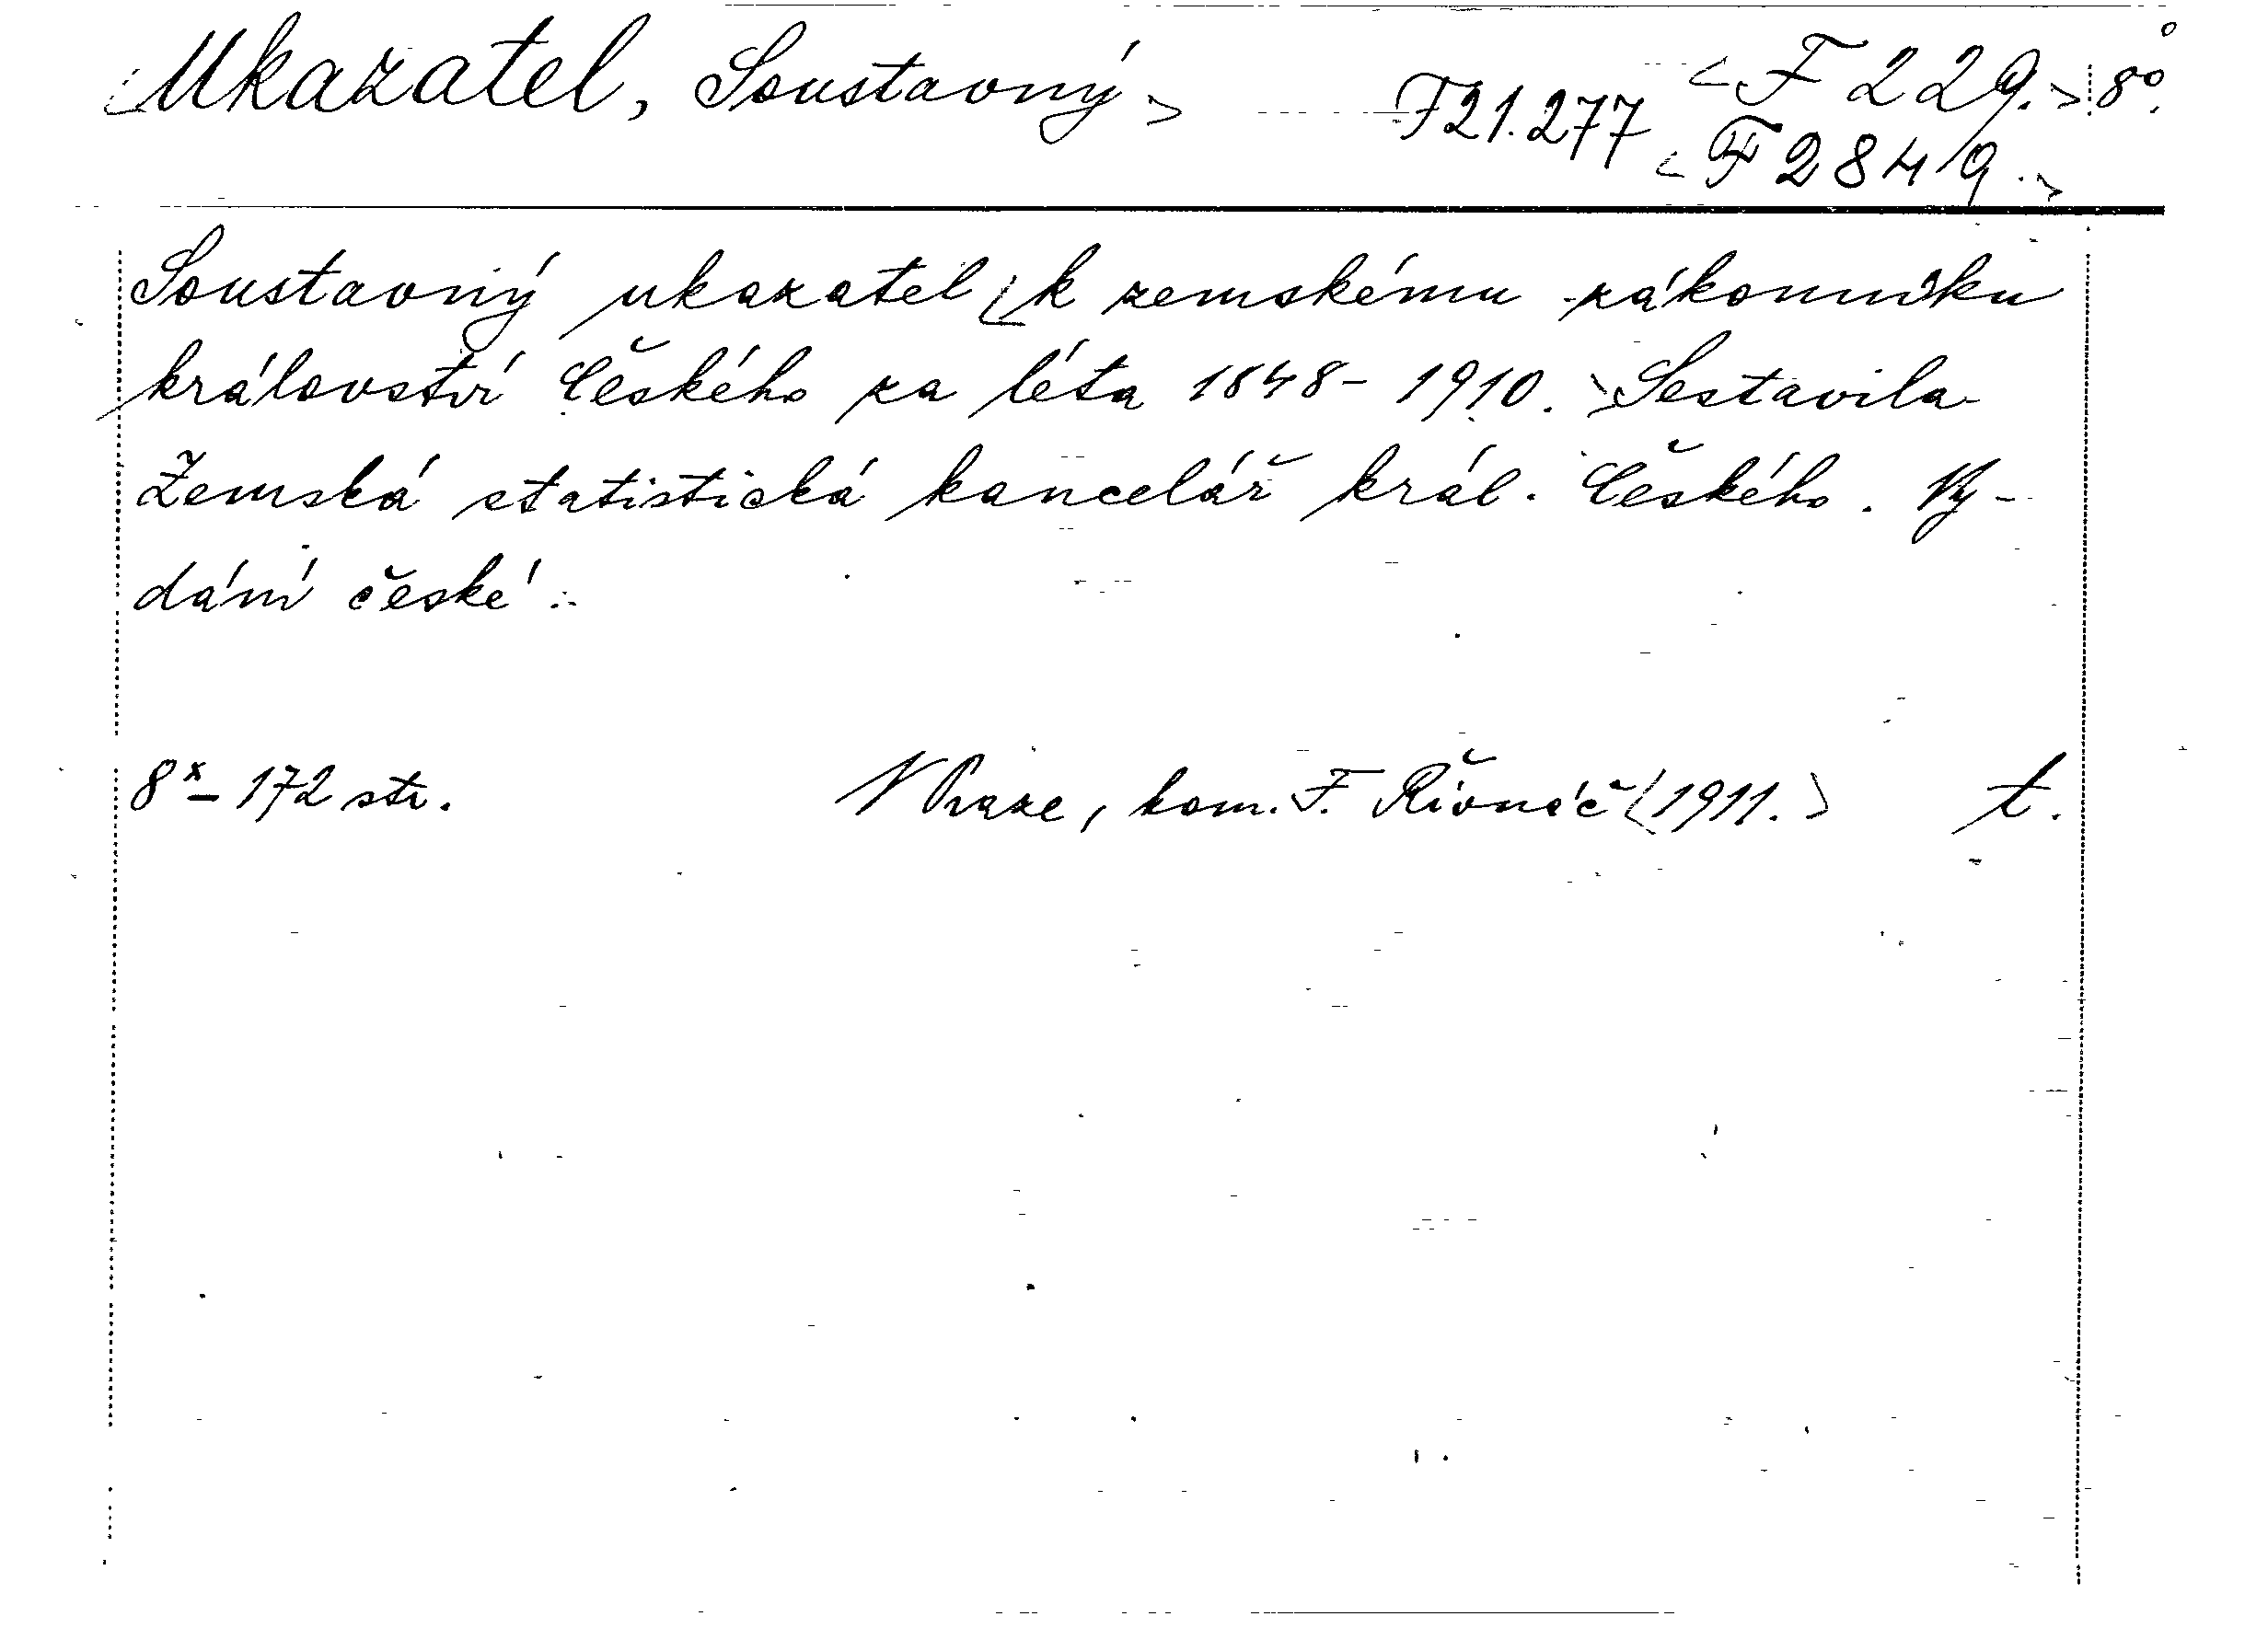 <Ukazatel, Soustavný> F21.277 <F 229.> 8°.
<F 2849.>
Soustavný ukazatel <k zemskému zákonníku
království Českého za léta 1848-1910.> Sestavila
Zemská statistická kancelář král. Českého. Vy-
dání české.
8x- 172 str. V Praze, kom. F. Řivnáč <1911.> t.